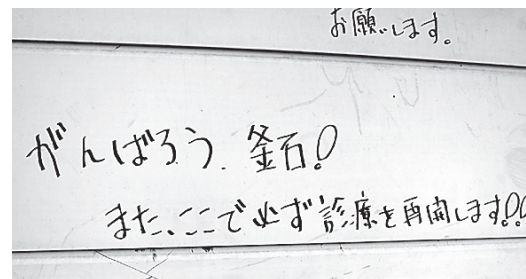 お願いします。
がんばろう、釜石!
また、ここで必ず診療を再開します!!